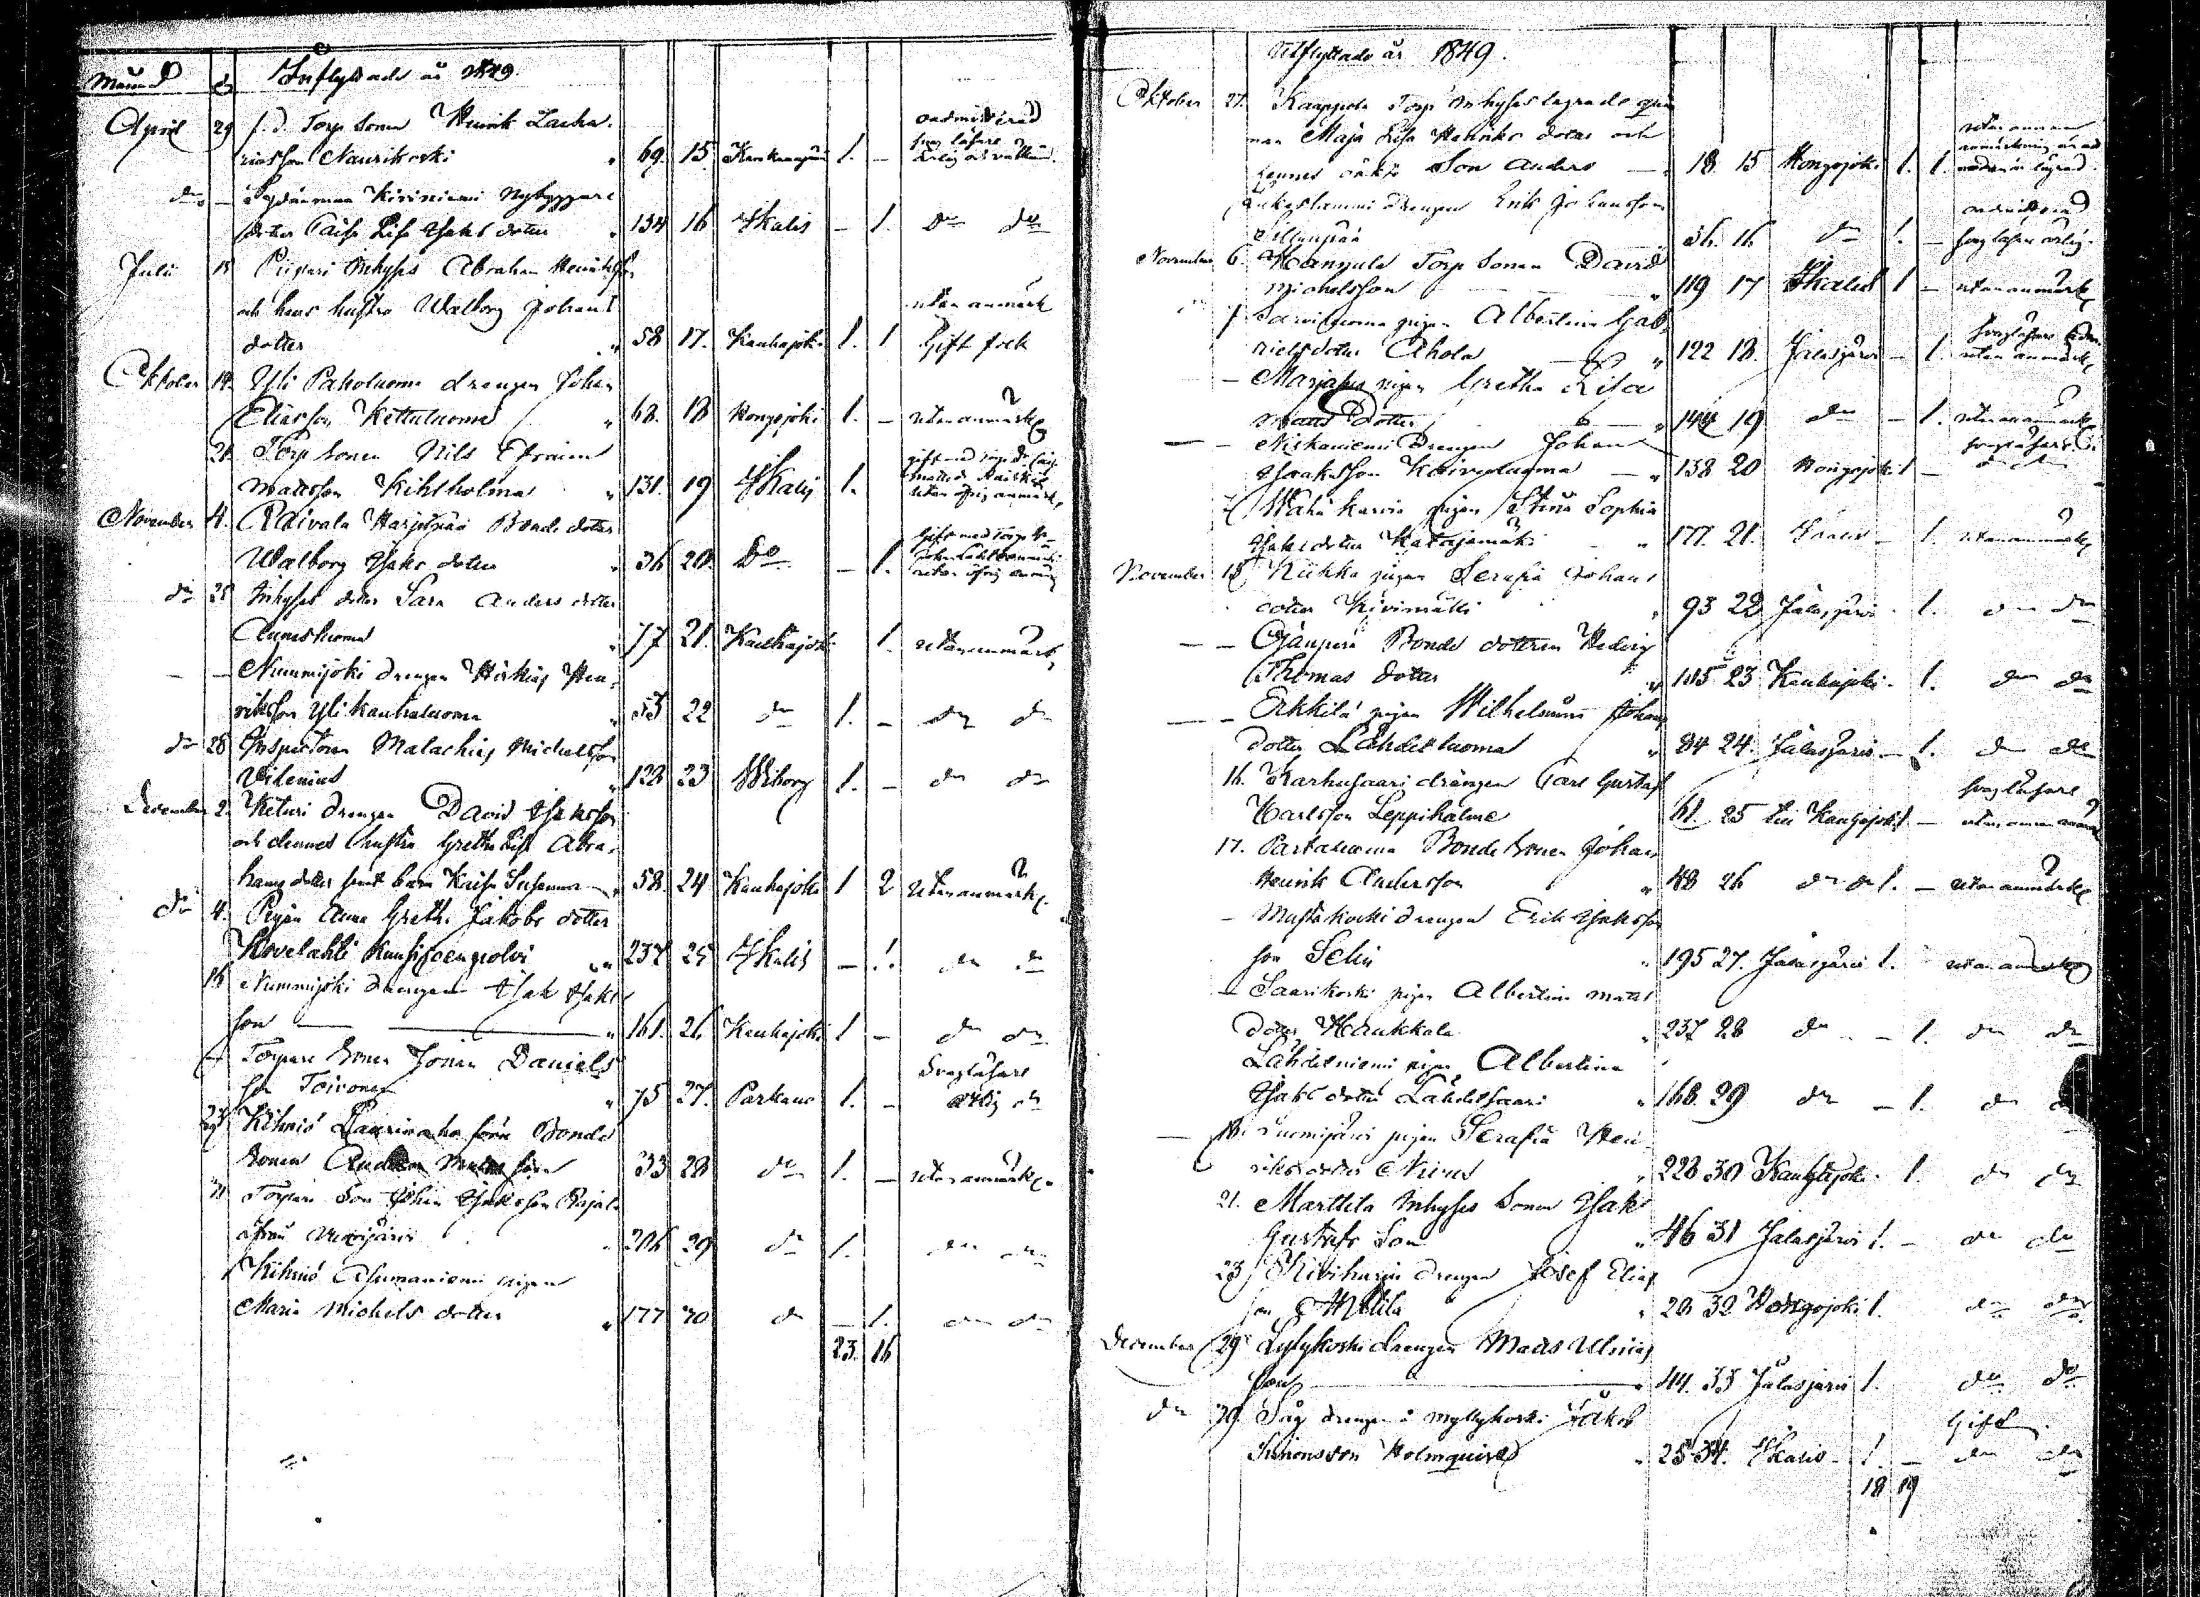 Månad d Inflyttade år 1849.
April 29 f. d. Torp Sonen Henrik Zacha-
riasson Naurikoski " 69. 15. Kankaanpää 1. — oadmitterad svag läsare ärlig
do — Sydänmaa Kiviniemi Nybyggare
dotter Caisa Lisa Isaks dotter " 134 16 Ikalis — 1. do do
Juli 15 Piipari Inhyses Abraham Henriksson
och hans hustru Walborg Johans
dotter " 58 17. Kauhajoki 1. 1 utan anmärk Gift folk
Oktober 14. Yli Paholuoma drengen Johan
Eliasson Kettuluoma " 68. 18 Hongojoki 1. — utan anmärk
21. Torp Sonen Nils Efraim
Matsson Kihlholma " 131. 19 Ikalis 1. gift med utan öfrig anmärk,
November 4. Raivala Harjupää Bonde dotter
Walborg Isaks dotter " 36 20. Do — 1. Gift med utan öfrig anm
do 25 Inhyses dotter Sara Anders dotter
Aunesluoma " 77 21. Kauhajoki 1. utan anmärk,
— — Nummijoki drengen Hiskias Hen-
riksson Yli Kauhaluoma " 53 22 do 1. — do do
do 28 Inspectoren Malachias Michelsson
Vilenius " 128 23 Wiborg 1. — do do
December 2. Keturi drengen David Isaksson
och dennes hustru Greta Lisa Abra-
hams dotter samt barn Kaisa Susanna " 58. 24 Kauhajoki 1 2 utan anmärk.
do 4. Pigan Anna Greta Jakobs dotter
Kovelahti " 237 25 Ikalis — 1. do do
16 Nummijoki drengen Isak Isaks
son " 161. 26 Kauhajoki 1 — do do
— Torpare Sonen Johan Daniels
son Toivonen " 75 27. Parkano 1. — Svagläsare ärlig do
23 Kihniö Laurinaho från Bonde
Sonen 33 28 do 1. — utan anmärk.
31 Torpare Son Johan Isaksson
ifrån 206 29 do 1. do do
Kihniö Asumaniemi pigan
Maria Michels dotter " 177 30 do — 1. do do
23. 16
Utflyttade år 1849.
Oktober 27. Kauppila Torp Inhyses lägrade qvin
nan Maja Lisa Henriks dotter och
hennes oäkta Son Anders — " 18. 15 Hongojoki 1. 1. utan annan anmärkning än att modren är lägrad.
drengen Erik Johansson
Sillanpää 36. 16 do 1. — oadmitterad svag läsare ärlig.
November 6. Kangula Torp Sonen David
Michelsson " 119 17 Ikalis 1 — utan anmärk,
— Sarviluoma pigan Albertina Gab-
rielsdotter Ahola " 122 18. Jalasjärvi — 1. svagläsare utan anmärk,
— Marjaluo pigan Gretha Lisa
Mats Dotter " 144 19 do — 1. utan anmärk.
— — Niskaniemi Drengen Johan
Isaaksson Koivuluoma — " 138 20 Hongojoki 1 — svagläsare
7 Wähä Karvia pigan Stina Sophia
Isaks dotter Katajamäki " 177. 21. Ikalis — 1. utan anmärk
November 13 Niikko pigan Serafia Johans
dotter Kivimäki " 93 22 Jalasjärvi - 1. do do
— — Ojanperä Bonde dottren Hedvig
Thomas dotter " 105 23 Kauhajoki - 1. do do
— — Erkkilä pigan Wilhelmina Johans
dotter Lähdeluoma " 84 24. Jalasjärvi — 1. do do
16. Karhusaari drängen Carl Gustaf
Karlsson Leppihalme 61. 25 till Kauhajoki 1 — svagläsare utan annan anmärk
17. Partaluoma Bonde Sonen Johan
Henrik Andersson " 48 26 do do 1. — utan anmärk
— Mustakoski drengen Erik Isaksson
son Selin " 195 27. Jalasjärvi 1. utan anmärk
— Saarikoski pigan Albertina Mats
dotter Haukkala " 237 28 do — 1. do do
Lähdeniemi pigan Albertina
Isaks dotter Lähdesaari " 168. 29 do — 1. do
— 18. Suomijärvi pigan Serafia Hen
riksdotter Nirus " 228 30 Kauhajoki 1. do do
21. Marttila Inhyses Sonen Isak
Gustafs Son " 46 31 Jalasjärvi 1. — do do
23 Kiviharju drengen Josef Elias
son Anttila " 28 32 Hongojoki 1. do do
December 29 Lylykoski drengen Mats Ulrics
son " 44. 33 Jalasjärvi 1. do do
do 30 Såg drengen å Myllykoski Jakob
Simonsson Holmqvist " 25 34. Ikalis - 1. — Gift do do
18 19